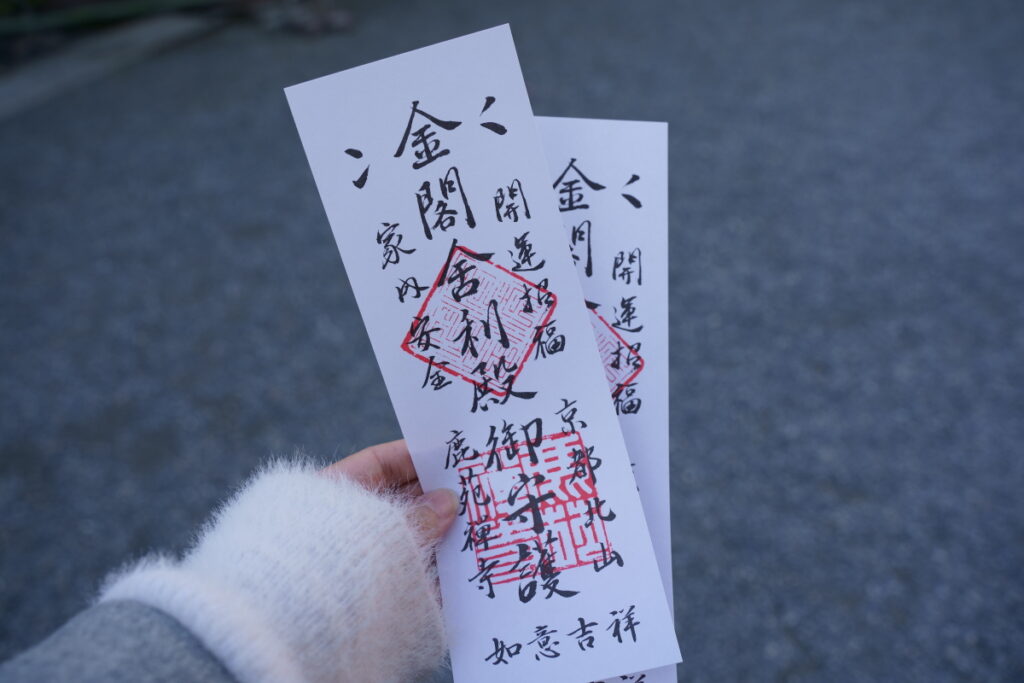 金閣舎利殿御守護
開運招福
家内安全
京都北山
鹿苑禅寺
如意吉祥
金閣
開運招福